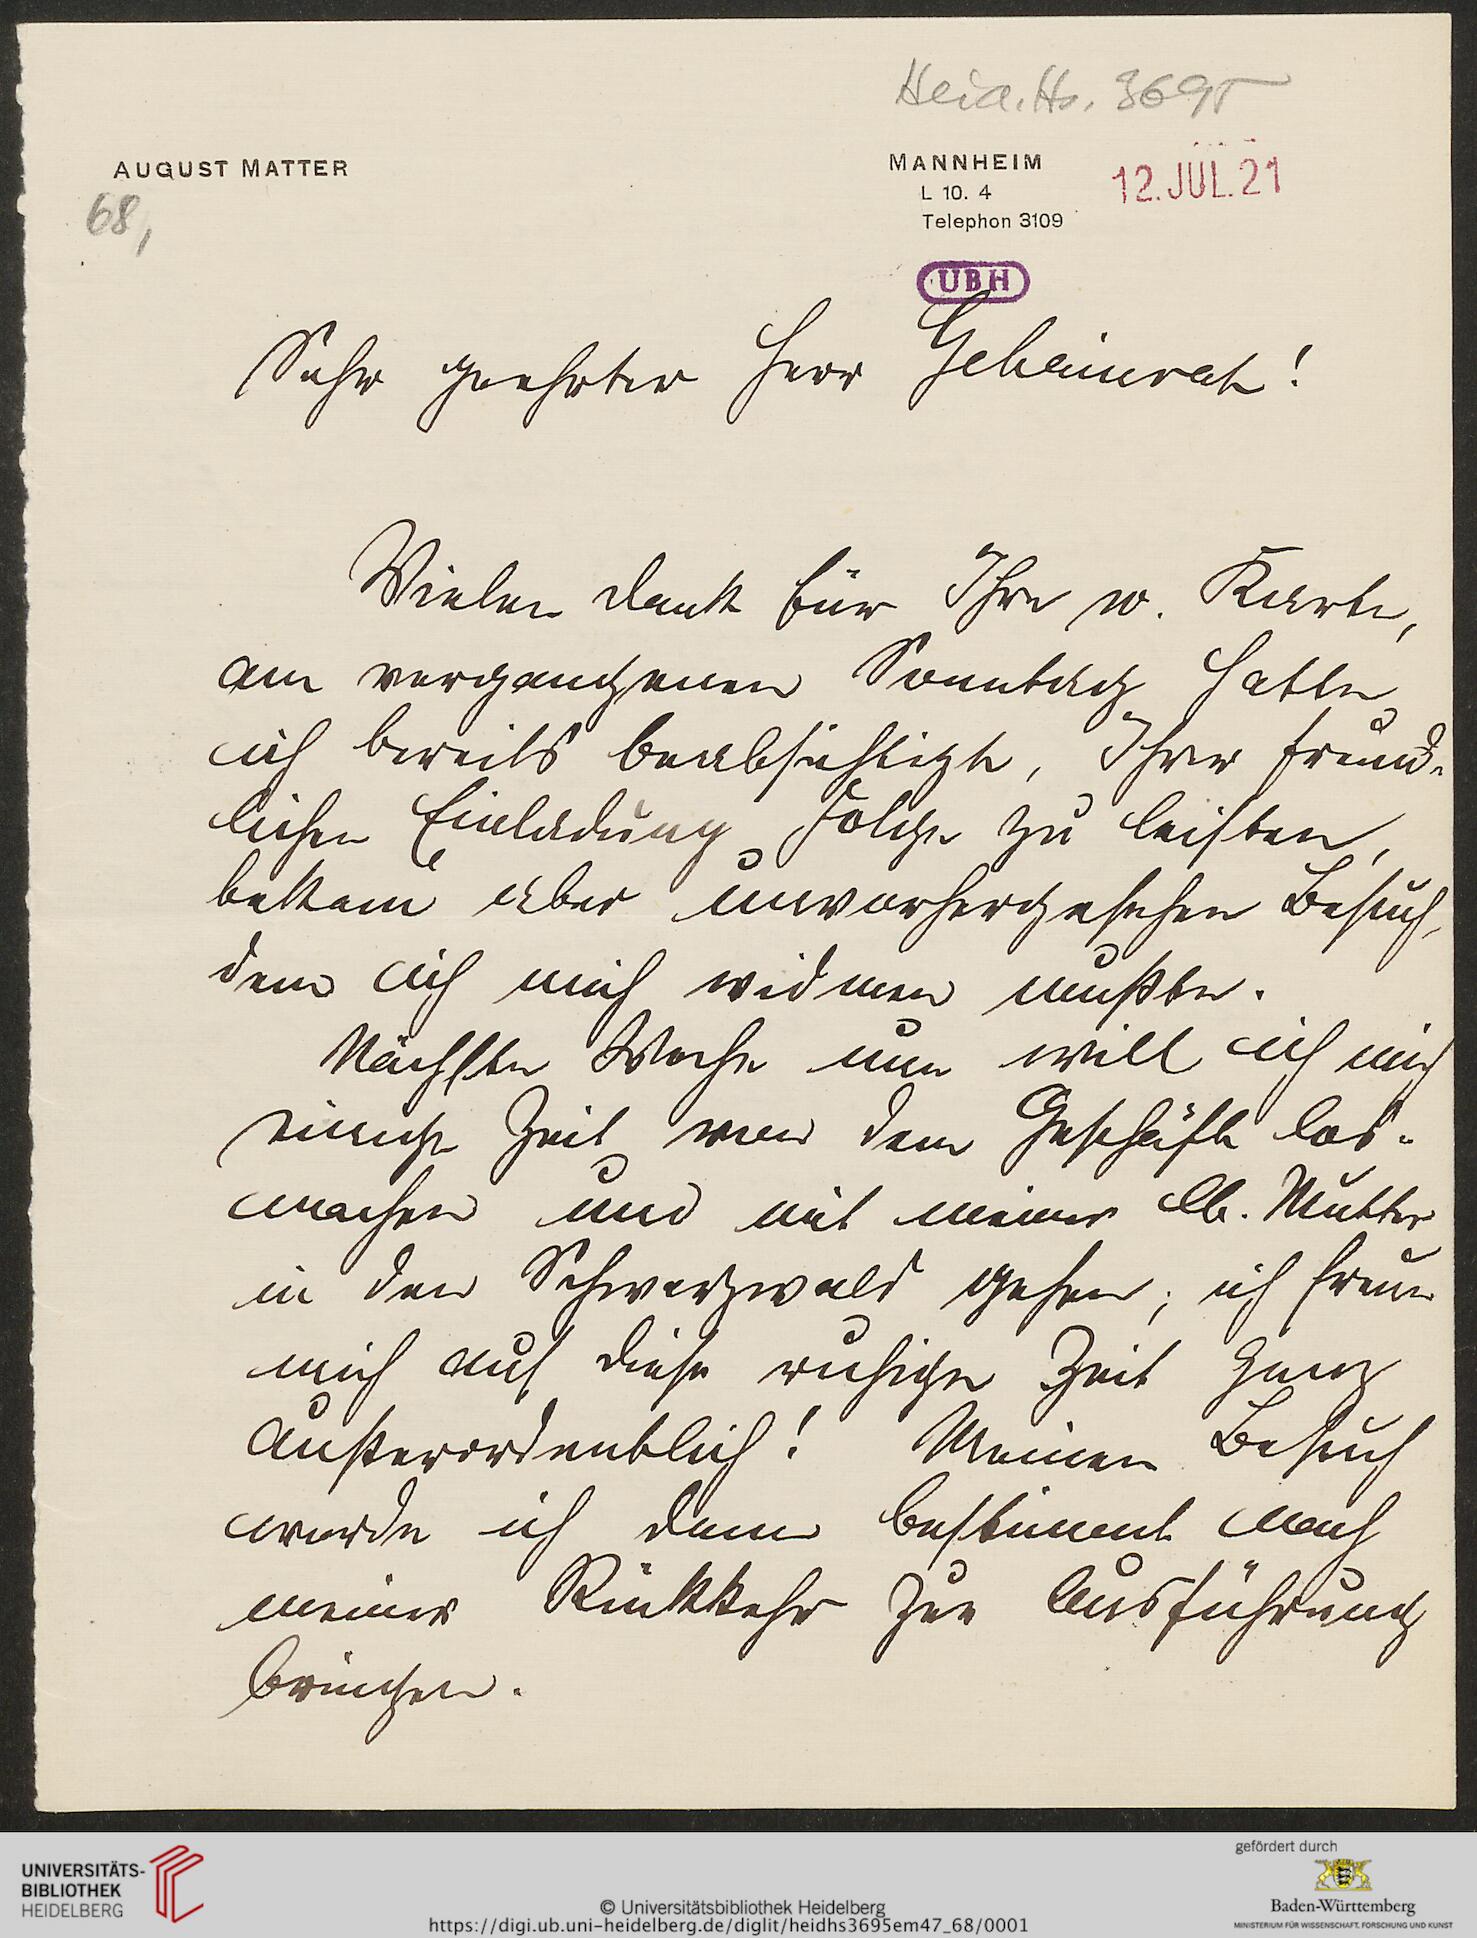 Heid. Hs. 3695
AUGUST MATTER
MANNHEIM
L 10. 4
Telephon 3109
12. JUL. 21
68,
UBH
Sehr geehrter Herr Geheimrat!
Vielen Dank für Ihre w. Karte,
am vergangenen Sonntag hatte
ich bereits beabsichtigt, Ihrer freund-
lichen Einladung Folge zu leisten,
bekam aber unvorhergesehen Besuch,
dem ich mich widmen mußte.
Nächste Woche nun will ich mich
einige Zeit von dem Geschäft los-
machen und mit meiner lb. Mutter
in den Schwarzwald gehen; ich freue
mich auf diese ruhige Zeit ganz
außerordentlich! Meinen Besuch
werde ich dann bestimmt nach
meiner Rückkehr zur Ausführung
bringen.
UNIVERSITÄTS-
BIBLIOTHEK
HEIDELBERG
© Universitätsbibliothek Heidelberg
https://digi.ub.uni-heidelberg.de/diglit/heidhs3695em47_68/0001
gefördert durch
Baden-Württemberg
MINISTERIUM FÜR WISSENSCHAFT, FORSCHUNG UND KUNST